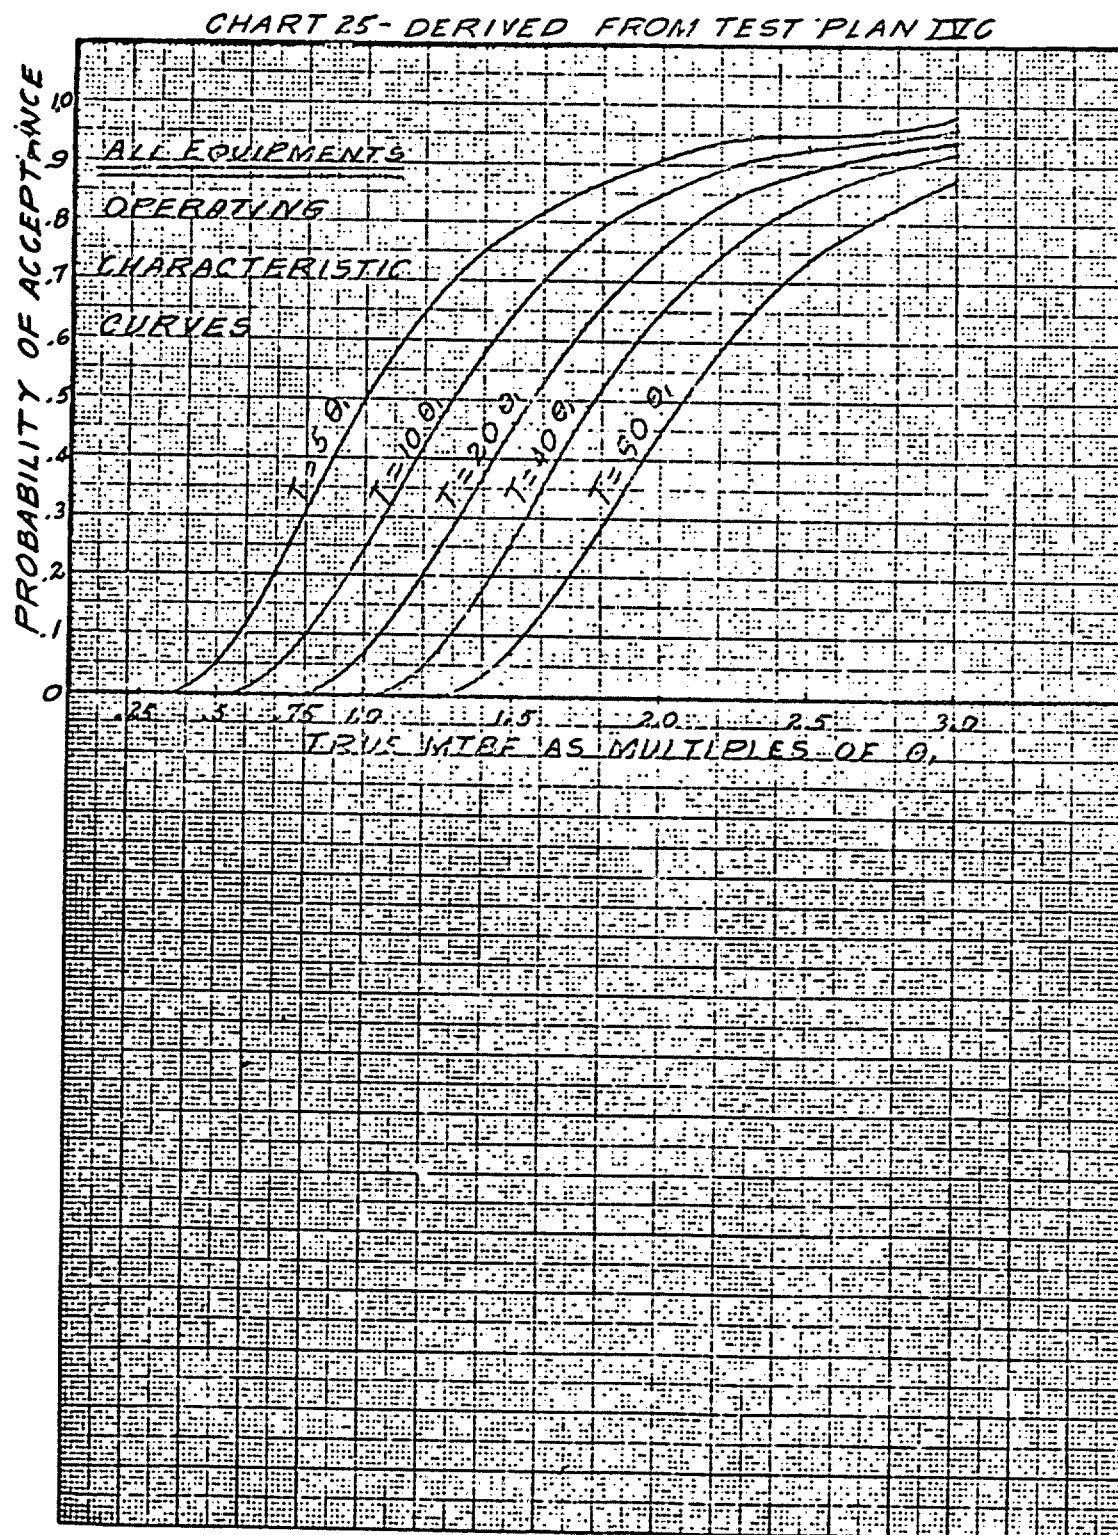 CHART 25- DERIVED FROM TEST PLAN IVC
PROBABILITY OF ACCEPTANCE
1.0
.9
.8
.7
.6
.5
.4
.3
.2
.1
0
ALL EQUIPMENTS
OPERATING
CHARACTERISTIC
CURVES
T=5 θ₁
T=10 θ₁
T=20 θ₁
T=40 θ₁
T= 80 θ₁
.25 .5 .75 1.0 1.5 2.0 2.5 3.0
TRUE MTBF AS MULTIPLES OF θ₁